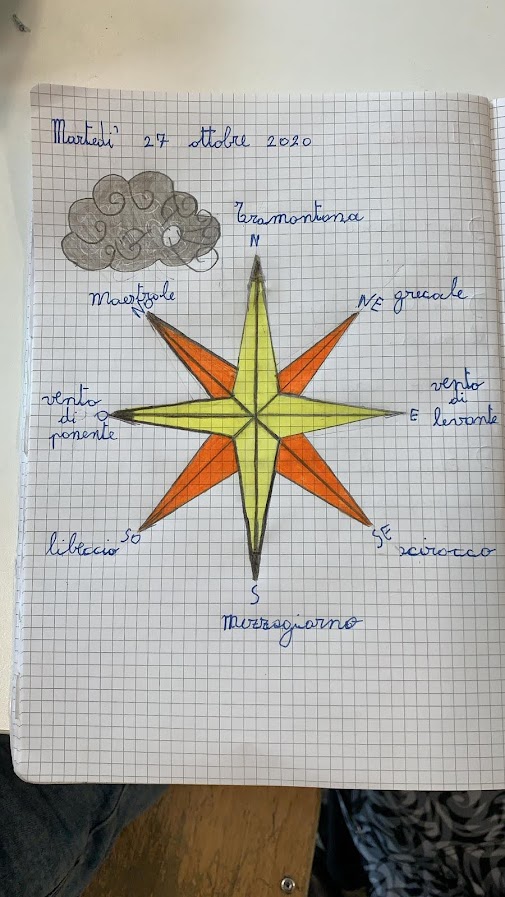 Martedi' 27 ottobre 2020
Tramontana
N
Maestrale
N
NE grecale
vento
di
ponente
O
E
vento
di
levante
libeccio SO
SE scirocco
S
Mezzogiorno